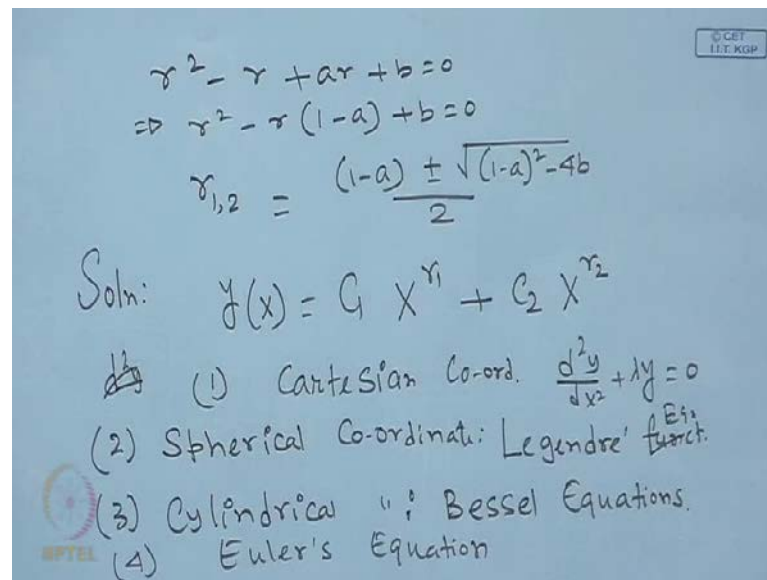 © CET
I.I.T. KGP
r² - r + ar + b = 0
⇒ r² - r (1-a) + b = 0
r₁,₂ = (1-a) ± √(1-a)² - 4b / 2
Soln: y(x) = C₁ X^r₁ + C₂ X^r₂
(1) Cartesian Co-ord. d²y/dx² + λy = 0
(2) Spherical Co-ordinate: Legendre' Eq.
(3) Cylindrical " : Bessel Equations.
(4) Euler's Equation
NPTEL